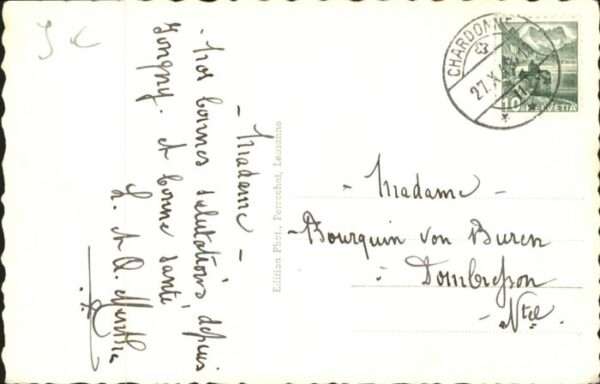 - Madame -
Nos bonnes salutations depuis
Jongny. et bonne santé
Edition Phot. Perrochet, Lausanne
CHARDONNE
27.X.
10 HELVETIA
- Madame -
- Bourquin von Buren
Dombresson
- Ntel.